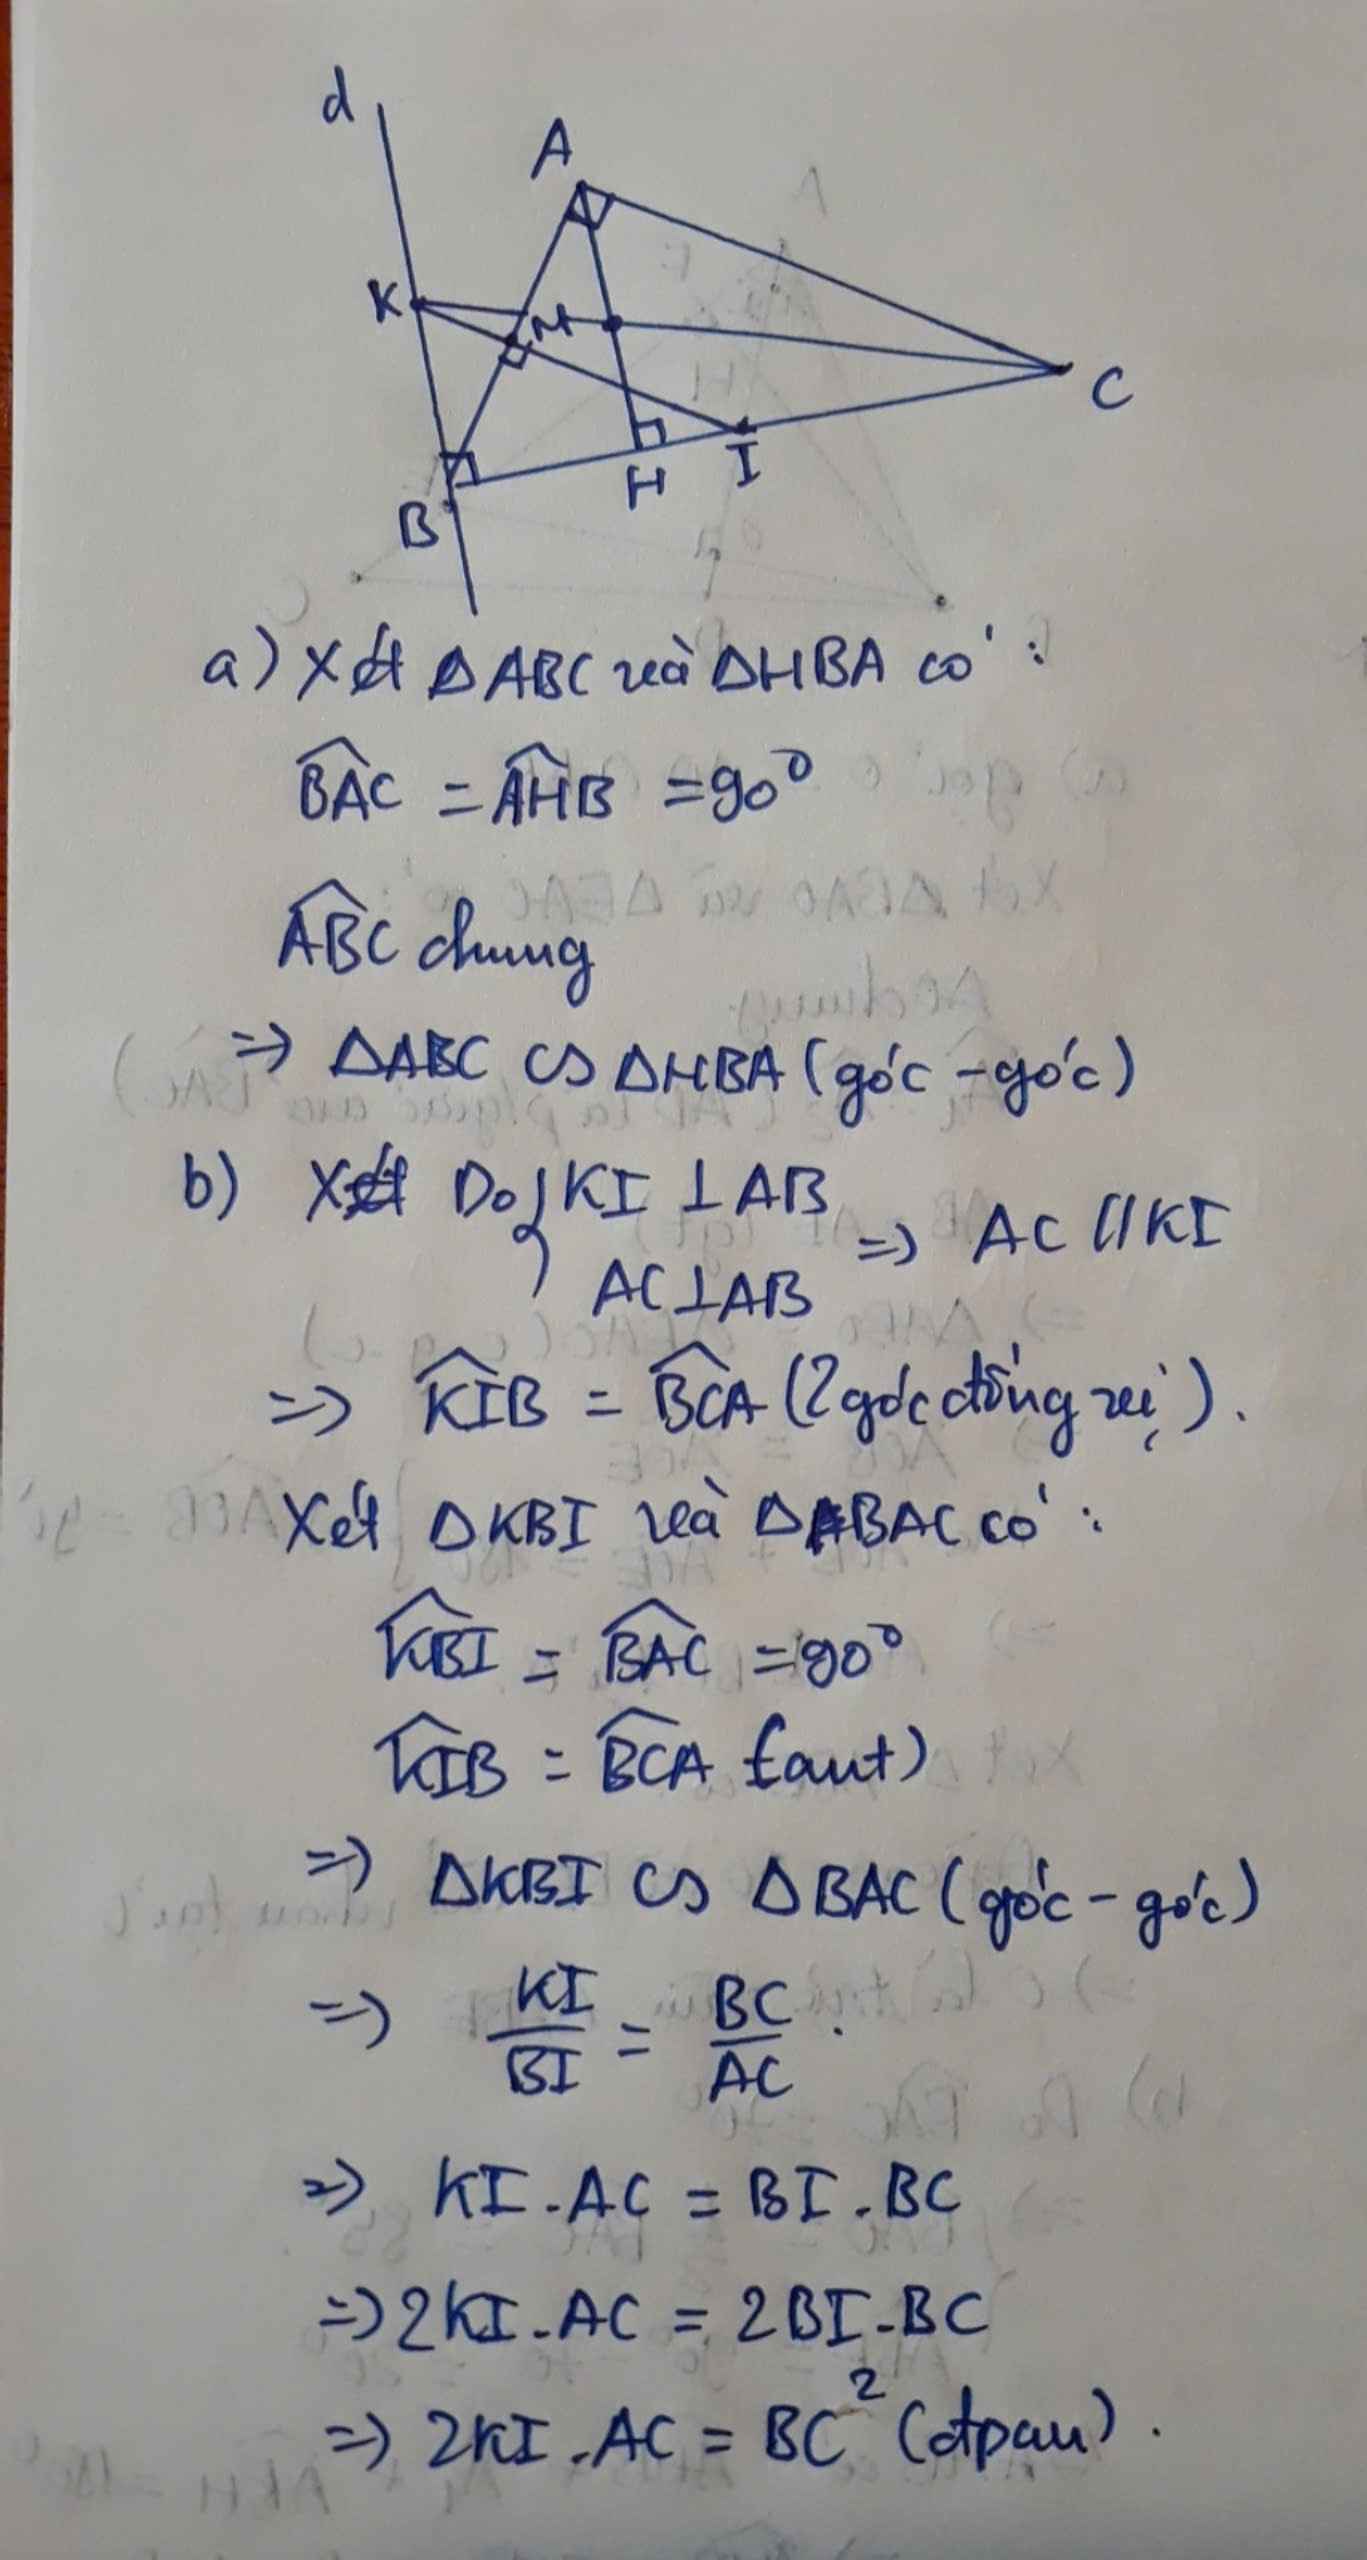 d
A
K
M
C
H
I
B
a) Xét ΔABC và ΔHBA có:
∠BAC = ∠AHB = 90°
∠ABC chung
=> ΔABC ∽ ΔHBA (góc - góc)
b) Do { KI ⊥ AB
AC ⊥ AB => AC // KI
=> ∠KIB = ∠BCA (2 góc đồng vị).
Xét ΔKBI và ΔBAC có:
∠KBI = ∠BAC = 90°
∠KIB = ∠BCA (cmt)
=> ΔKBI ∽ ΔBAC (góc - góc)
=> KI/BI = BC/AC.
=> KI.AC = BI.BC
=> 2KI.AC = 2BI.BC
=> 2KI.AC = BC² (đpcm).